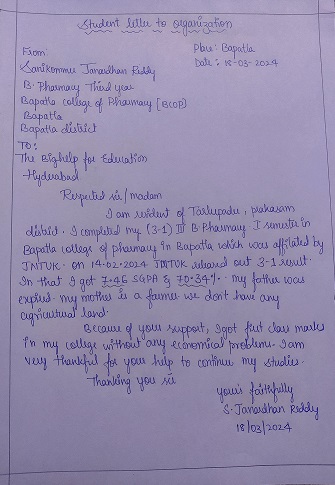 Student letter to organization
Place: Bapatla
Date: 18-03-2024
From
Sanikommu Janardhan Reddy
B. Pharmacy Third year
Bapatla college of Pharmacy [BCOP]
Bapatla
Bapatla district
To:
The Bighelp for Education
Hyderabad
Respected sir/madam
I am resident of Tarlupadu, prakasam
district. I completed my (3-1) III B Pharmacy I semester in
Bapatla college of pharmacy in Bapatla which was affilated by
JNTUK. on 14-02-2024 JNTUK released out 3-1 result.
In that I got 7.46 SGPA & 70.34%. my father was
expired. my mother is a farmer we dont have any
agricultural land.
Because of your support, I got first class marks
in my college without any economical problems. I am
very thankful for your help to continue my studies.
Thanking you sir
your's faithfully
S. Janardhan Reddy
18/03/2024